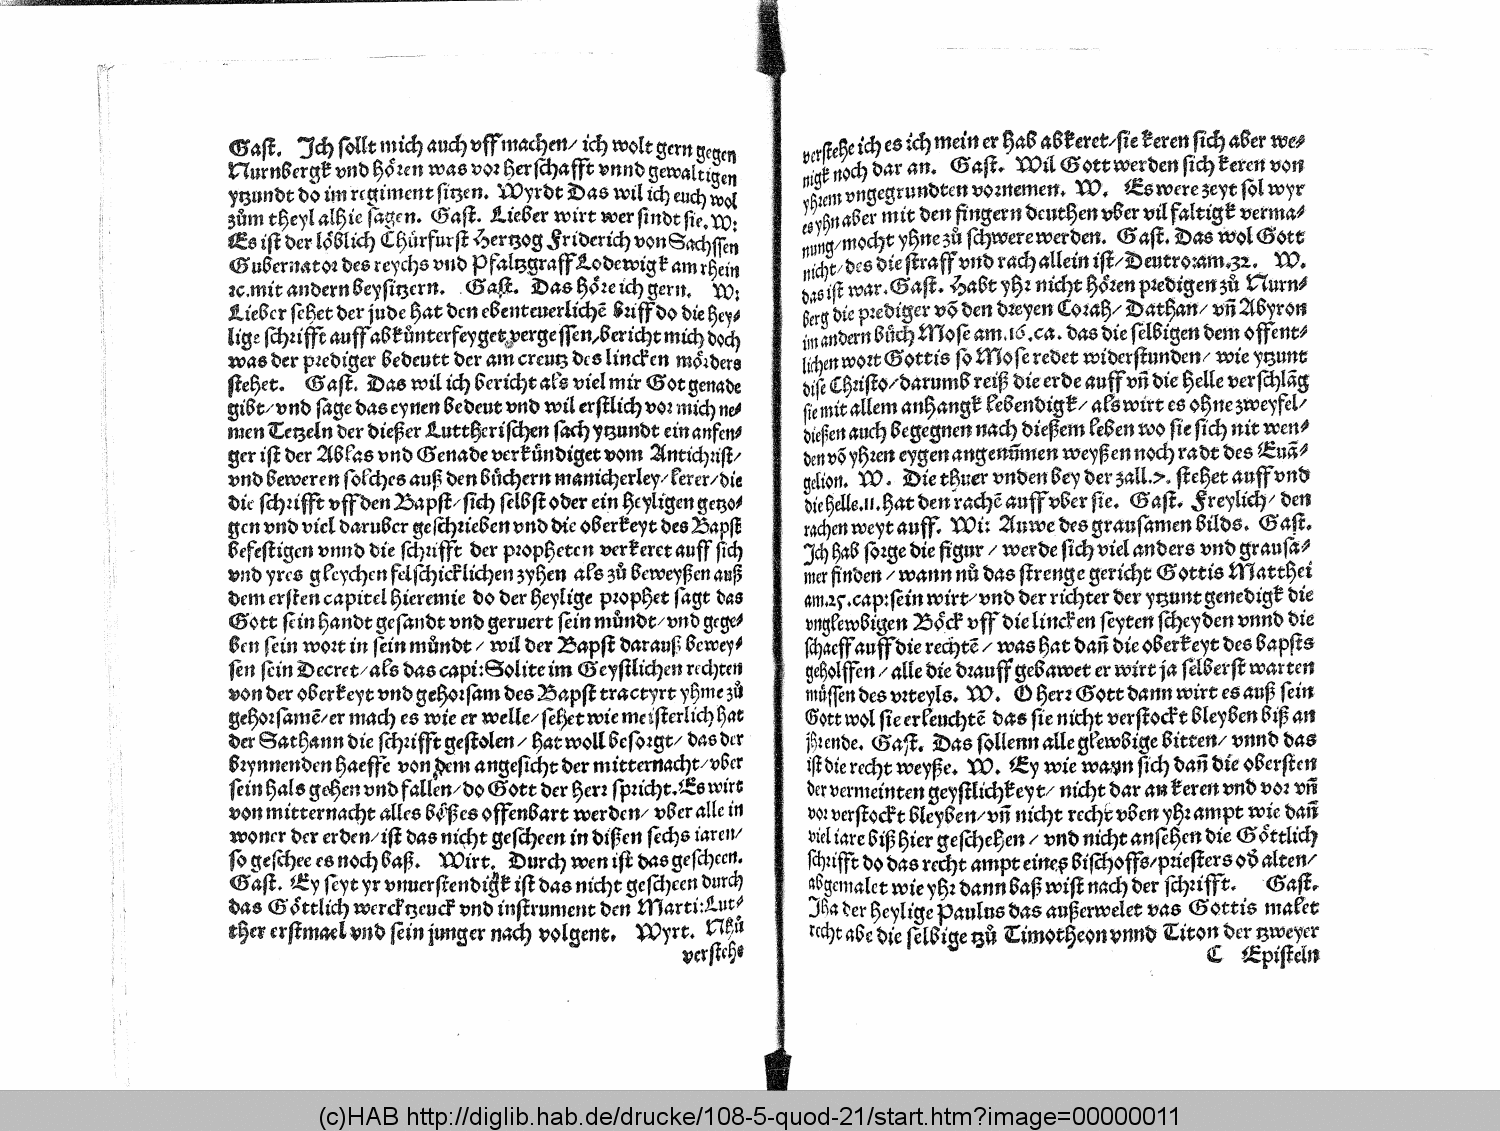 Gast. Ich sollt mich auch vff machen/ ich wolt gern gegen
Nurnbergk vnd hören was vor herschafft vnnd gewaltigen
ytzundt do im regiment sitzen. Wyrdt Das wil ich euch wol
zům theyl alhie sagen. Gast. Lieber wirt wer sindt sie. W:
Es ist der löblich Chůrfurst Hertzog Friderich von Sachssen
Gubernator des reychs vnd Pfaltzgraff Lodewigk am rhein
ꝛc. mit andern beysitzern. Gast. Das höre ich gern. W:
Lieber sehet der jude hat den ebenteuerlichē briff do die hey⸗
lige schrifft auff abkůnterfeyget vergessen/bericht mich doch
was der prediger bedeutt der am creutz des lincken mörders
stehet. Gast. Das wil ich bericht als viel mir Got genade
gibt/vnd sage das eynen bedeut vnd wil erstlich vor mich ne⸗
men Tetzeln der dießer Luttherischen sach ytzundt ein anfen⸗
ger ist der Ablas vnd Genade verkůndiget vom Antichrist/
vnd beweren solches auß den bůchern manicherley/kerer/die
die schrifft vff den Bapst/sich selbst oder ein heyligen getzo⸗
gen vnd viel daruber geschrieben vnd die oberkeyt des Bapst
befestigen vnnd die schrifft der propheten verkeret auff sich
vnd yres gleychen felschicklichen zyhen als zů beweyßen auß
dem ersten capitel Hieremie do der heylige prophet sagt das
Gott sein handt gesandt vnd geruert sein můndt/vnd gege⸗
ben sein wort in sein můndt/ wil der Bapst darauß bewey⸗
sen sein Decret/als das capi: Solite im Geystlichen rechten
von der oberkeyt vnd gehorsam des Bapst tractyrt yhme zů
gehorsamē/er mach es wie er welle/sehet wie meisterlich hat
der Sathann die schrifft gestolen/ hat woll besorgt/ das der
brynnenden haeffe von dem angesicht der mitternacht/vber
sein hals gehen vnd fallen/do Gott der Herr spricht. Es wirt
von mitternacht alles bößes offenbart werden/ vber alle in
woner der erden/ist das nicht gescheen in dißen sechs iaren/
so geschee es noch baß. Wirt. Durch wen ist das gescheen.
Gast. Ey seyt yr vnuerstendigk ist das nicht gescheen durch
das Göttlich werck tzeuck vnd instrument den Marti: Lut⸗
ther erstmael vnd sein junger nach volgent. Wyrt. Nhů
verstehe
verstehe ich es ich mein er hab abkeret/sie keren sich aber we⸗
nigk noch dar an. Gast. Wil Gott werden sich keren von
yhrem vngegrundten vornemen. W. Es were zeyt sol wyr
es yhn aber mit den fingern deuthen vber vilfaltigk verma⸗
nung/mocht yhne zů schwere werden. Gast. Das wol Gott
nicht/des die straff vnd rach allein ist/Deutro: am. 32. W.
das ist war. Gast. Habt yhr nicht hören predigen zů Nurn⸗
berg die prediger võ den dreyen Corah/ Dathan/ vñ Abyron
im andern bůch Mose am. 16. ca. das die selbigen dem offent⸗
lichen wort Gottis so Mose redet widerstunden/ wie ytzunt
dise Christo/darumb reiß die erde auff vñ die helle verschlãg
sie mit allem anhangk lebendigk/ als wirt es ohne zweyfel/
dießen auch begegnen nach dießem leben wo sie sich nit wen⸗
den võ yhren eygen angenũmen weyßen noch radt des Euã⸗
gelion. W. Die thuer vnden bey der zall. 7. stehet auff vnd
die helle. 11. hat den rachē auff vber sie. Gast. Freylich/ den
rachen weyt auff. Wi: Auwe des grausamen bilds. Gast.
Ich hab sorge die figur/ werde sich viel anders vnd grausa⸗
mer finden/ wann nů das strenge gericht Gottis Matthei
am. 25. cap: sein wirt/vnd der richter der ytzunt genedigk die
vnglewbigen Böck vff die lincken seyten scheyden vnnd die
schaeff auff die rechtē/ was hat dañ die oberkeyt des bapsts
geholffen/ alle die drauff gebawet er wirt ja selberst warten
můssen des vrteyls. W. O Herr Gott dann wirt es auß sein
Gott wol sie erleuchtē das sie nicht verstockt bleyben biß an
jhr ende. Gast. Das sollenn alle glewbige bitten/ vnnd das
ist die recht weyße. W. Ey wie wann sich dañ die obersten
der vermeinten geystlichkeyt/ nicht dar an keren vnd vor vñ
vor verstockt bleyben/vñ nicht recht vben yhr ampt wie dañ
viel iare biß hier geschehen/ vnd nicht ansehen die Göttlich
schrifft do das recht ampt eines bischoffs/priesters oď alten/
abgemalet wie yhr dann baß wist nach der schrifft. Gast.
Jha der heylige Paulus das außerwelet vas Gottis malet
recht abe die selbige tzů Timotheon vnnd Titon der tzweyer
C Episteln
(c)HAB http://diglib.hab.de/drucke/108-5-quod-21/start.htm?image=00000011